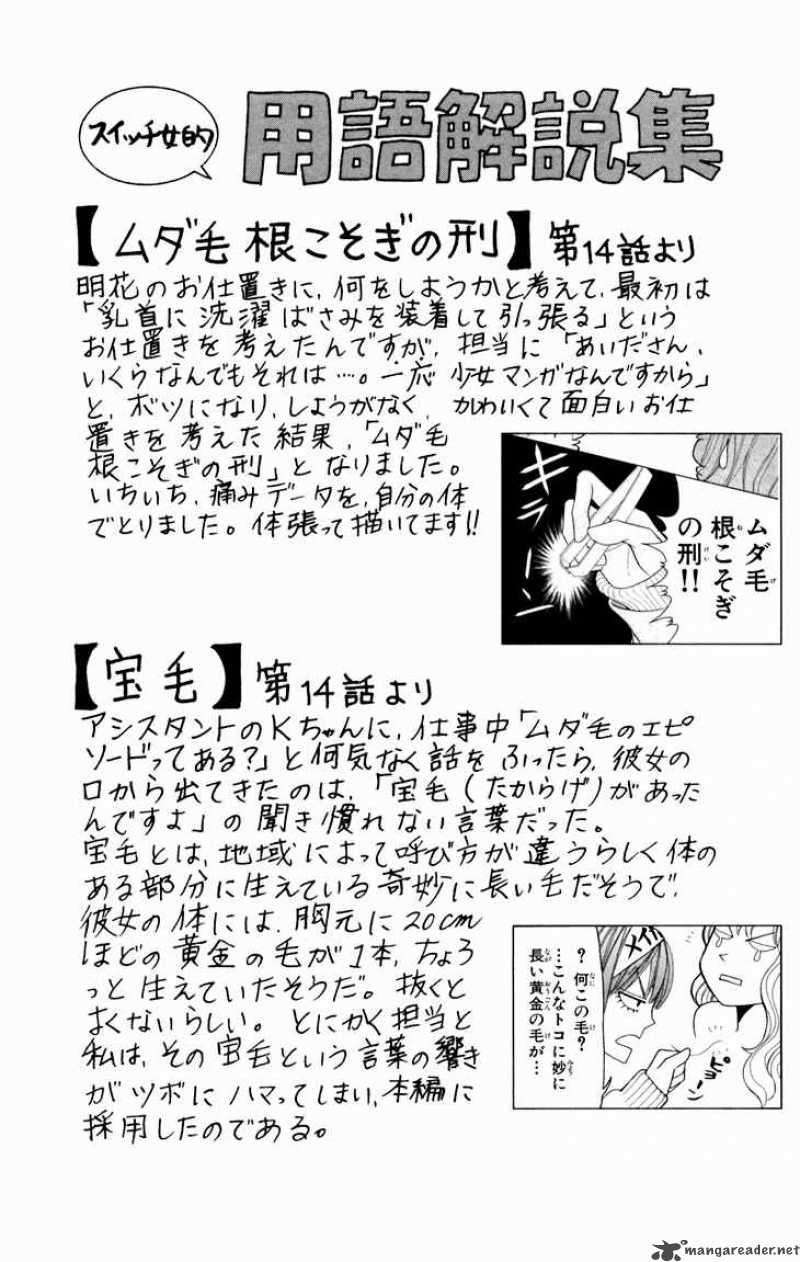 スイッチ女的
用語解説集
【ムダ毛根こそぎの刑】第14話より
明花のお仕置きに、何をしようかと考えて、最初は
「乳首に洗濯ばさみを装着して引っ張る」という
お仕置きを考えたんですが、担当に「あいださん、
いくらなんでもそれは…。一応少女マンガなんですから」
と、ボツになり、しようがなく、かわいくて面白いお仕
置きを考えた結果、「ムダ毛
根こそぎの刑」となりました。
いちいち、痛みデータを、自分の体
でとりました。体張って描いてます!!
ムダ毛
根こそぎ
の刑!!
【宝毛】第14話より
アシスタントのKちゃんに、仕事中「ムダ毛のエピ
ソードってある?」と何気なく話をふったら、彼女の
口から出てきたのは、「宝毛(たからげ)があった
んですよ」の聞き慣れない言葉だった。
宝毛とは、地域によって呼び方が違うらしく体の
ある部分に生えている奇妙に長い毛だそうで、
彼女の体には、胸元に20cm
ほどの黄金の毛が1本、ちょろ
っと生えていたそうだ。抜くと
よくないらしい。とにかく担当と
私は、その宝毛という言葉の響き
がツボにハマってしまい、本編に
採用したのである。
?何この毛?
…こんなトコに妙に
長い黄金の毛が…
mangareader.net